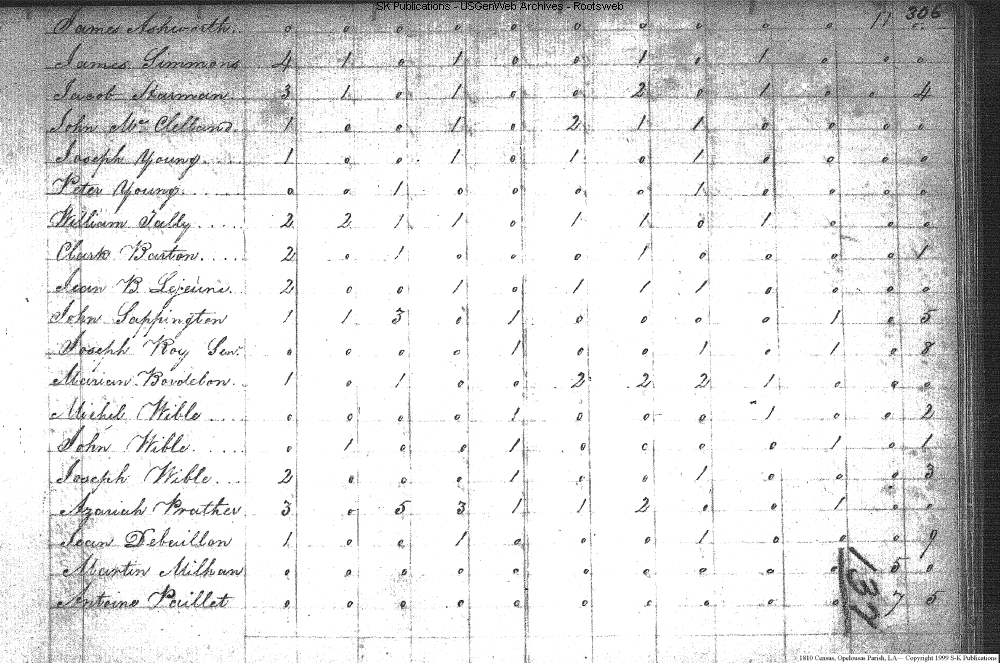 SK Publications - USGenWeb Archives - Rootsweb
306
James Ashworth. 0 0 0 0 0 0 0 0 0 0 11
James Simmons 4 1 0 1 0 0 1 0 1 0 0 0
Jacob Harman 3 1 0 1 0 0 2 0 1 0 0 4
John Mc Clelland. 1 0 0 1 0 2 1 1 0 0 0 0
Joseph Young.... 1 0 0 1 0 1 0 1 0 0 0 0
Peter Young...... 0 0 1 0 0 0 0 1 0 0 0 0
William Tally..... 2 2 1 1 0 1 1 0 1 0 0 0
Clark Barton..... 2 0 1 0 0 0 1 0 0 0 0 1
Jean B. Lejeune. 2 0 0 1 0 1 1 1 0 0 0 0
John Sappington 1 1 3 0 1 0 0 0 0 1 0 5
Joseph Roy Senr. 0 0 0 0 1 0 0 1 0 1 0 8
Marian Bordelon. 1 0 1 0 0 2 2 2 1 0 0 0
Michel Wible .... 0 0 0 0 1 0 0 0 1 0 0 2
John Wible..... 0 1 0 0 1 0 0 0 0 1 0 1
Joseph Wible... 2 0 0 0 1 0 0 1 0 0 0 3
Azariah Prather 3 0 5 3 1 1 2 0 0 1 0 0
Jean Debaillon 1 0 0 1 0 0 0 1 0 0 0 9
Martin Milhan 0 0 0 0 0 0 0 0 0 0 5 0
Antoine Paillet 0 0 0 0 0 0 0 0 0 0 7 5
137
1810 Census, Opelousas Parish, LA -- Copyright 1999 S-K Publications